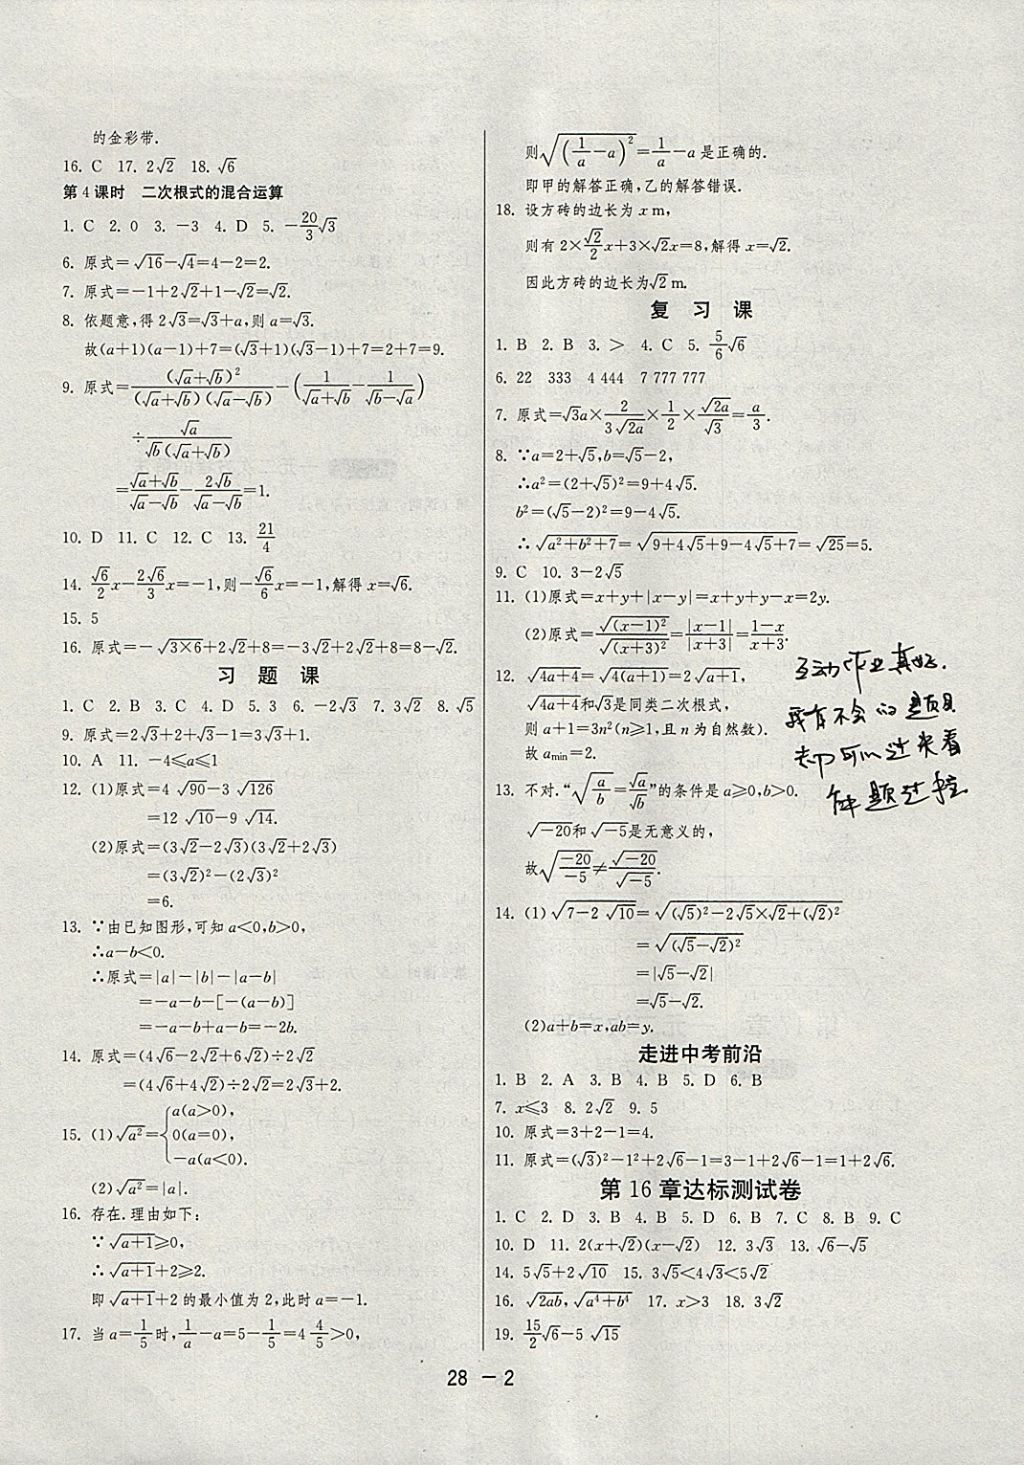 的金彩带.
16. C 17. 2√2 18. √6
第4课时 二次根式的混合运算
1. C 2. 0 3. -3 4. D 5. -20/3√3
6. 原式=√16-√4=4-2=2.
7. 原式=-1+2√2+1-√2=√2.
8. 依题意,得2√3=√3+a,则a=√3.
故(a+1)(a-1)+7=(√3+1)(√3-1)+7=2+7=9.
9. 原式=(√a+√b)²/((√a+√b)(√a-√b))-(1/(√a+√b)-1/(√b-√a))
÷√a/(√b(√a+√b))
=(√a+√b)/(√a-√b)-2√b/(√a-√b)=1.
10. D 11. C 12. C 13. 21/4
14. √6/2x-2√6/3x=-1,则-√6/6x=-1,解得x=√6.
15. 5
16. 原式=-√(3×6)+2√2+8=-3√2+2√2+8=8-√2.
习 题 课
1. C 2. B 3. C 4. D 5. 3 6. -2√3 7. 3√2 8. √5
9. 原式=2√3+2+√3-1=3√3+1.
10. A 11. -4≤a≤1
12. (1)原式=4√90-3√126
=12√10-9√14.
(2)原式=(3√2-2√3)(3√2+2√3)
=(3√2)²-(2√3)²
=6.
13. ∵由已知图形,可知a<0,b>0,
∴a-b<0.
∴原式=|a|-|b|-|a-b|
=-a-b-[-(a-b)]
=-a-b+a-b=-2b.
14. 原式=(4√6-2√2+6√2)÷2√2
=(4√6+4√2)÷2√2=2√3+2.
15. (1)√a²={a(a>0),
0(a=0),
-a(a<0).
(2)√a²=|a|.
16. 存在.理由如下:
∵√(a+1)≥0,
∴√(a+1)+2≥2.
即√(a+1)+2的最小值为2,此时a=-1.
17. 当a=1/5时,1/a-a=5-1/5=4 4/5>0,
则√((1/a-a)²)=1/a-a是正确的.
即甲的解答正确,乙的解答错误.
18. 设方砖的边长为x m,
则有2×√2/2x+3×√2x=8,解得x=√2.
因此方砖的边长为√2 m.
复 习 课
1. B 2. B 3. > 4. C 5. 5/6√6
6. 22 333 4 444 7 777 777
7. 原式=√3a×2/(3√2a)×1/2×√2a/√3=a/3.
8. ∵a=2+√5,b=√5-2,
∴a²=(2+√5)²=9+4√5.
b²=(√5-2)²=9-4√5.
∴√(a²+b²+7)=√(9+4√5+9-4√5+7)=√25=5.
9. C 10. 3-2√5
11. (1)原式=x+y+|x-y|=x+y+y-x=2y.
(2)原式=√((x-1)²)/√((x+3)²)=|x-1|/|x+3|=(1-x)/(x+3).
12. √(4a+4)=√(4(a+1))=2√(a+1),
√(4a+4)和√3是同类二次根式,
则a+1=3n²(n≥1,且n为自然数).
故aₘᵢₙ=2.
13. 不对.“√(a/b)=√a/√b”的条件是a≥0,b>0.
√-20和√-5是无意义的,
故√(-20/-5)≠√-20/√-5.
14. (1)√(7-2√10)=√((√5)²-2√5×√2+(√2)²)
=√((√5-√2)²)
=|√5-√2|
=√5-√2.
(2)a+b=x,ab=y.
走进中考前沿
1. B 2. A 3. B 4. B 5. D 6. B
7. x≤3 8. 2√2 9. 5
10. 原式=3+2-1=4.
11. 原式=(√3)²-1²+2√6-1=3-1+2√6-1=1+2√6.
第16章达标测试卷
1. C 2. D 3. B 4. B 5. D 6. B 7. C 8. B 9. C
10. D 11. 2(x+√2)(x-√2) 12. 3√3 13. √6-√5
14. 5√5+2√10 15. 3√5<4√3<5√2
16. √2ab,√(a⁴+b⁴) 17. x>3 18. 3√2
19. 15/2√6-5√15
互动作业真好.
我有不会的题目
都可以过来看
解题过程
28 - 2